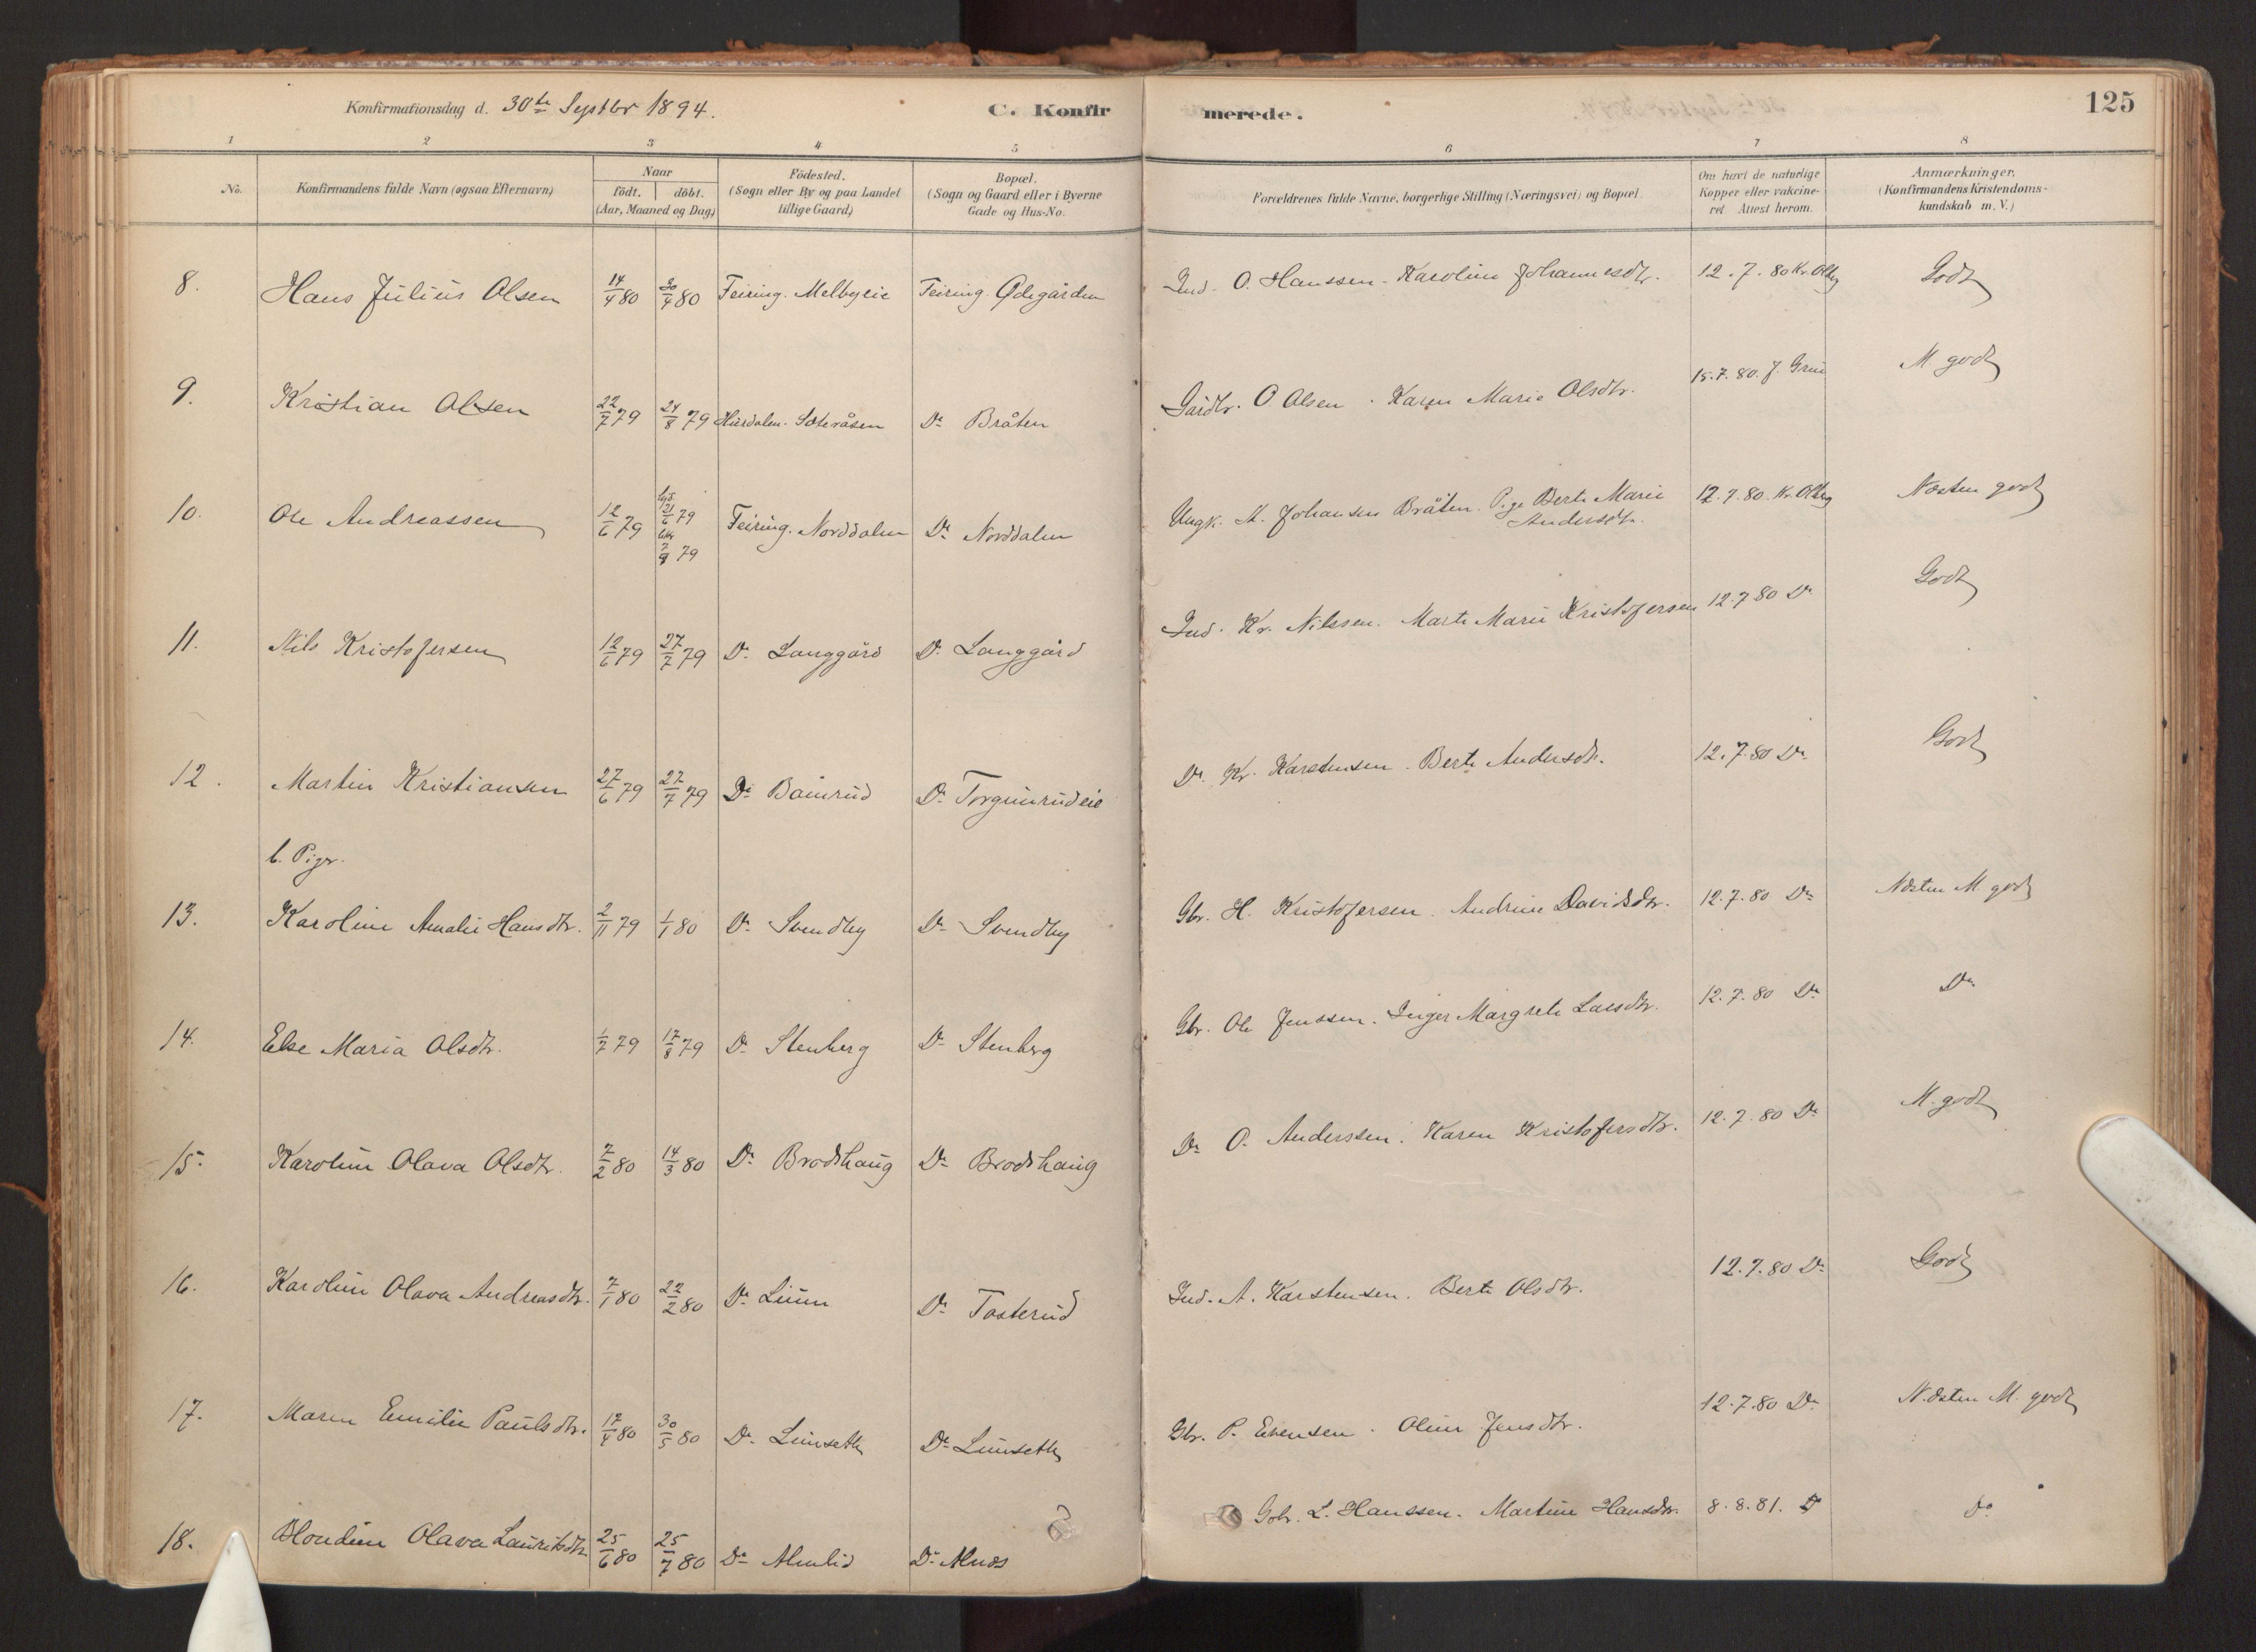 Konfirmationsdag d. 30te Septbr 1894.
C. Konfirmerede.
125
1 2 3 4 5 6 7 8
No.
Konfirmandens fulde Navn (ogsaa Efternavn)
Naar
födt. döbt.
(Aar, Maaned og Dag)
Födested.
(Sogn eller By og paa Landet
tillige Gaard)
Bopæl.
(Sogn og Gaard eller i Byerne
Gade og Hus-No.
Forældrenes fulde Navne, borgerlige Stilling (Næringsvei) og Bopæl.
Om havt de naturlige
Kopper eller vakcine-
ret Attest herom.
Anmærkninger,
(Konfirmandens Kristendoms-
kundskab m. V.)
8. Hans Julius Olsen 14/4 80 30/4 80 Feiring. Melbyeie Feiring. Ødegården Ind. O. Hanssen. Karoline Johannesdtr. 12.7.80 Kr. Olbg Godt
9. Kristian Olsen 22/7 79 24/8 79 Hurdalen. Soteråsen Do Bråten Gårdbr. O Olsen. Karen Marie Olsdtr. 15.7.80. J. Grui M godt
10. Ole Andreassen 12/6 79 21/6 79 79 Feiring. Norddalen Do Norddalen Ungk. A. Johansen Bråten. Pige Berte Marie Andersdtr. 12.7.80. Kr. Olbg Næsten godt
11. Nils Kristofersen 12/6 79 27/7 79 Do Langgård Do Langgård Ind. Kr. Nilssen. Marte Marie Kristofersen 12.7 80 Do Godt
12. Martin Kristiansen 27/6 79 27/7 79 Do Bainrud Do Torgunrudeie Do Kr. Karstensen. Berte Andersdtr. 12.7.80 Do Godt
b. Piger.
13. Karoline Amalie Hansdtr. 2/11 79 1/1 80 Do Svendby Do Svendby Gbr. H. Kristofersen. Andrine Davidsdtr. 12.7.80 Do Næsten M. godt
14. Else Maria Olsdtr. 1/7 79 17/8 79 Do Stenberg Do Stenberg Gbr. Ole Jenssen. Inger Margrete Larsdtr. 12.7.80 Do Do
15. Karoline Olava Olsdtr. 7/2 80 14/3 80 Do Brodshaug Do Brodshaug Do O. Anderssen. Karen Kristofersdtr. 12.7.80 Do M. godt
16. Karoline Olava Andreasdtr. 7/1 80 22/2 80 Do Lunn Do Tosterud Ind. A. Karstensen. Berte Olsdtr. 12.7.80 Do Godt
17. Maren Emilie Paulsdtr. 12/4 80 30/5 80 Do Lunseth Do Lunseth Gbr. P. Evensen. Oline Jensdtr. 12.7.80 Do Næsten M. godt
18. Blondine Olava Lauritsdtr 25/6 80 25/7 80 Do Almlid Do Alnæs Gbr. L. Hanssen. Martine Hansdtr. 8.8.81. D Do